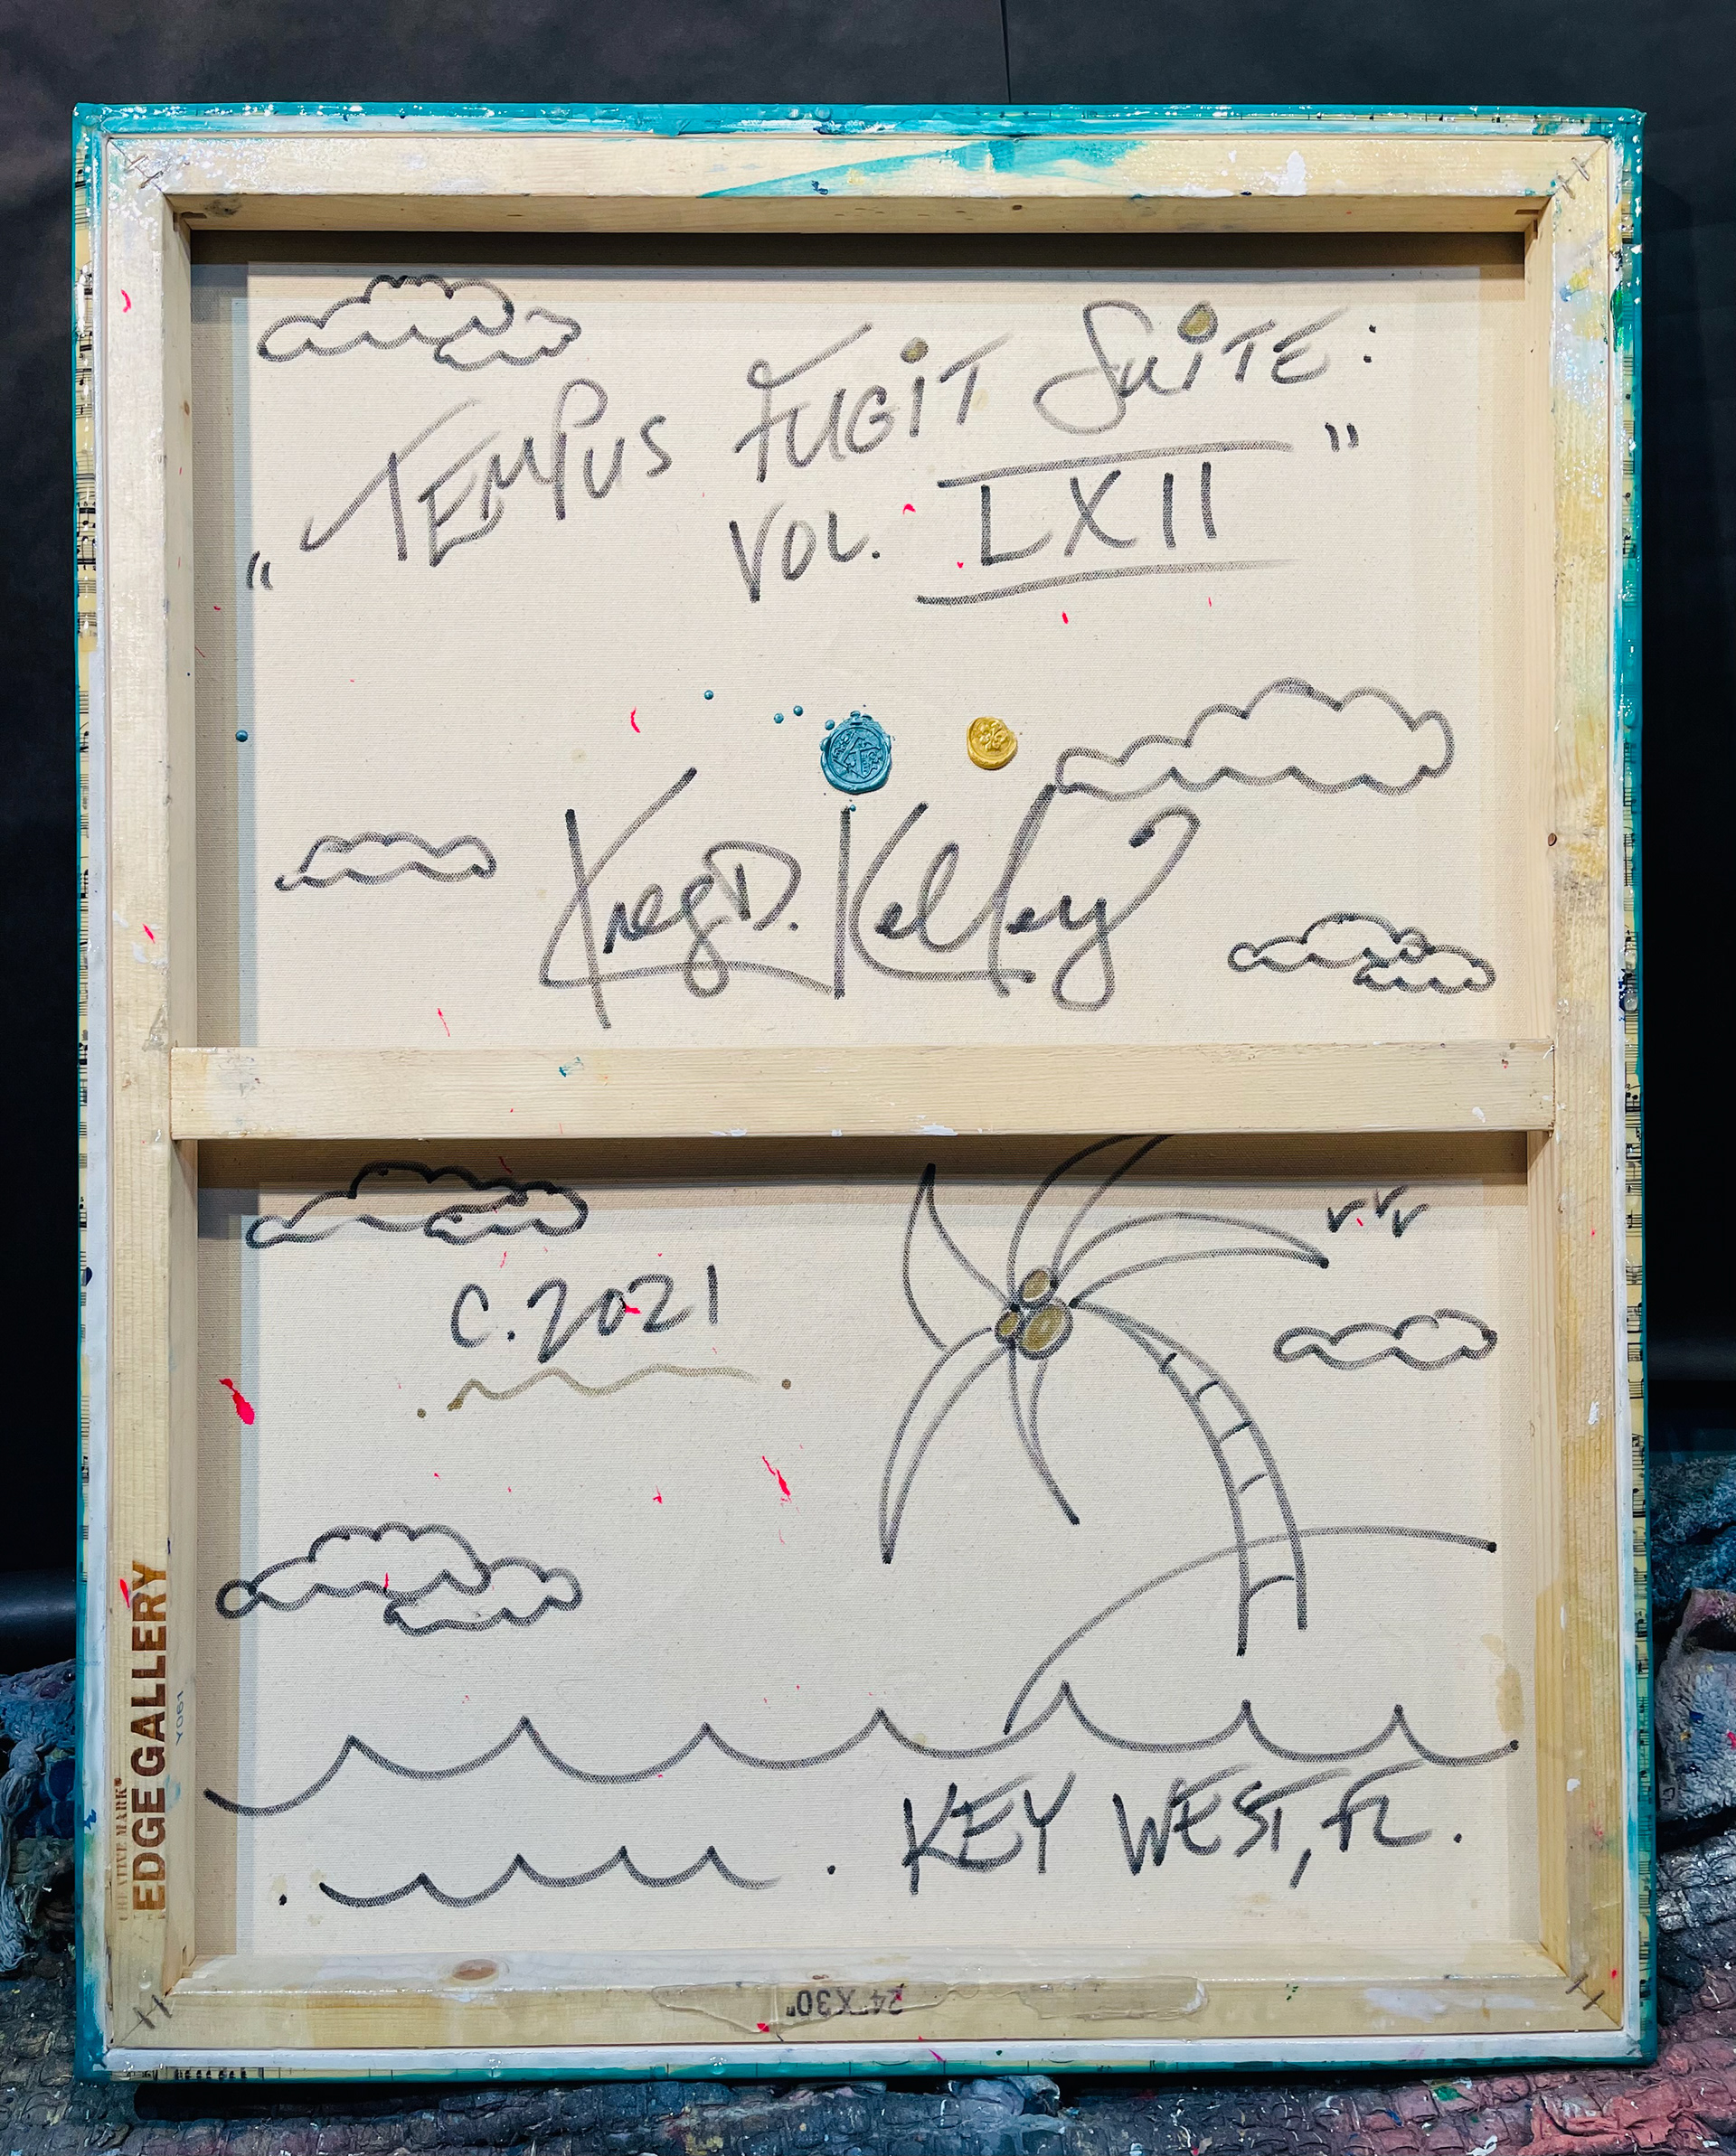 "TEMPUS FUGIT SUITE:
VOL. LXII"
Kreg D. Kelley
C. 2021
KEY WEST, FL.
CREATIVE MARK®
EDGE GALLERY
Y061
24"X30"